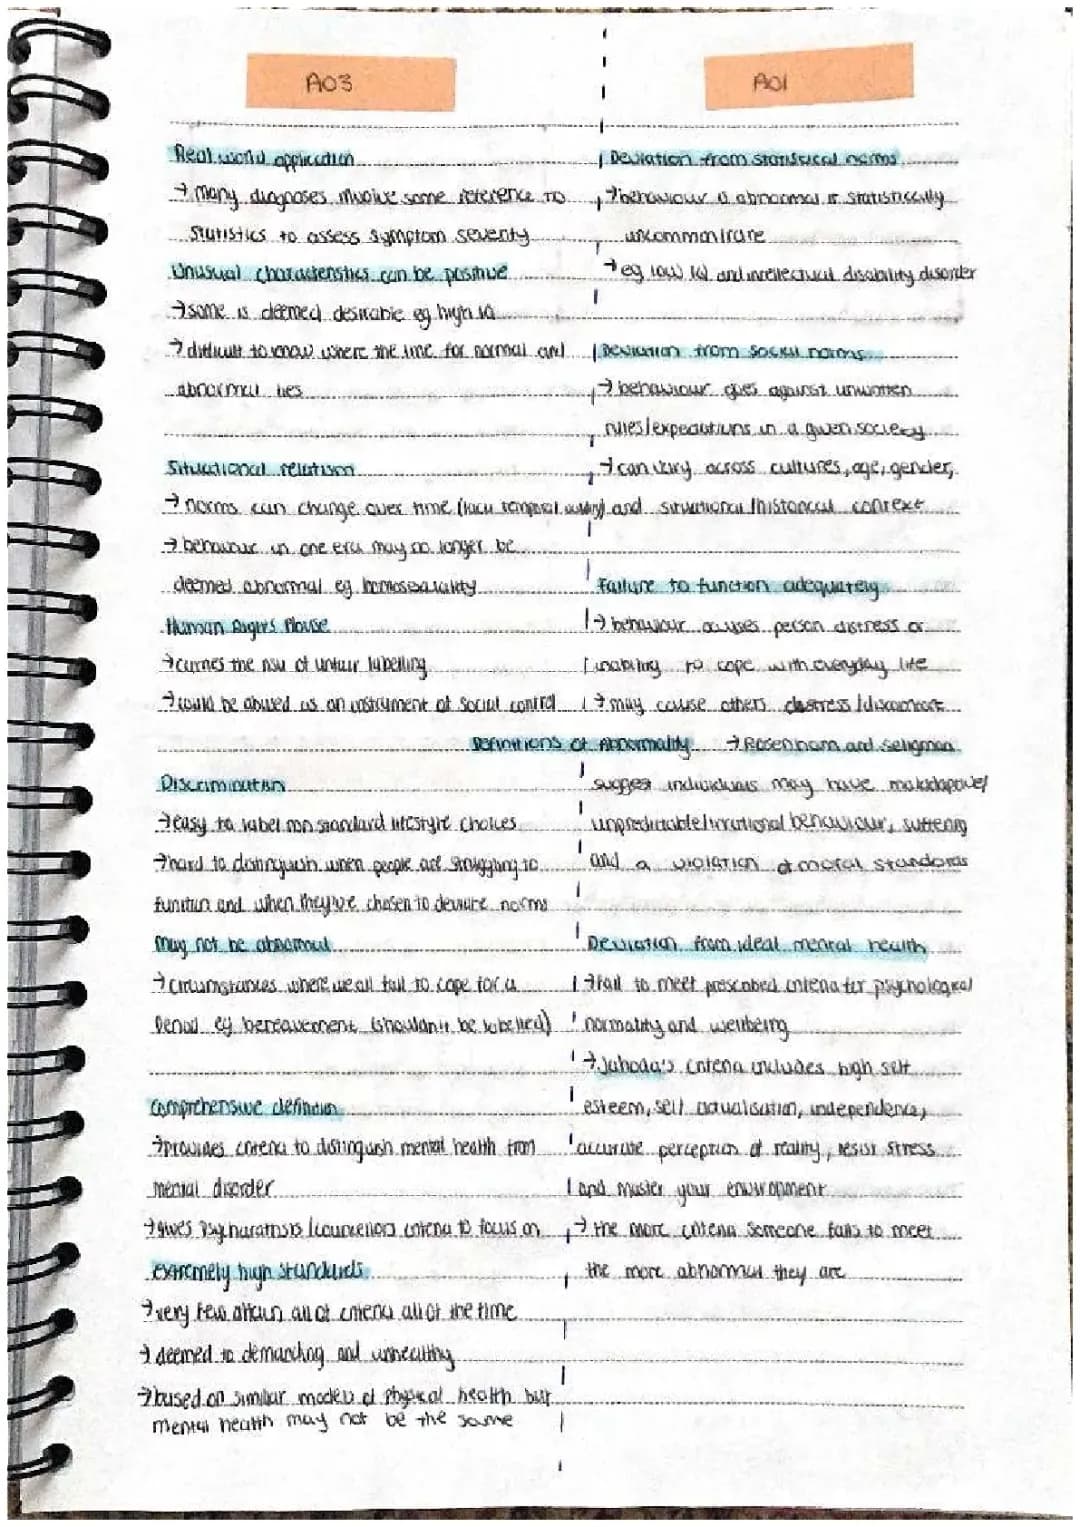 AO3
Real world application
→ many diagnoses involve some reference to
statistics to assess symptom severity
Unusual characteristics can be positive
→ some is deemed desirable eg high IQ
→ difficult to know where the line for normal and
abnormal lies
Situational relatism
→ norms can change over time (lack temporal validity)
→ behaviour in one era may no longer be
deemed abnormal eg homosexuality
Human Rights Abuse
→ carries the risk of unfair labelling
→ could be abused as an instrument of social control
Definitions of Abnormality
Discrimination
→ easy to label non standard lifestyle choices
→ hard to distinguish when people are struggling to
function and when they've chosen to deviate norms
May not be abnormal
→ circumstances where we all fail to cope for a
period eg bereavement (shouldn't be labelled)
Comprehensive definition
→ provides criteria to distinguish mental health from
mental disorder
→ gives Psychiatrists / councellors criteria to focus on
extremely high standards
→ very few attain all of criteria all of the time
→ deemed to demanding and unhealthy
→ based on similar models of physical health but
mental health may not be the same
AO1
Deviation from statistical norms
→ behaviour is abnormal if statistically
uncommon/rare
→ eg low IQ and intellectual disability disorder
Deviation from social norms
→ behaviour goes against unwritten
rules/expectations in a given society
→ can vary across cultures, age, gender,
and situational /historical context
Failure to function adequately
→ behaviour causes person distress or
inability to cope with everyday life
→ may cause others distress /discomfort
→ Rosenham and seligman
suggest individuals may have maladaptive/
unpredictable/irrational behaviour, suffering
and a violation of moral standards
Deviation from ideal mental health
→ fail to meet prescribed criteria for psychological
normality and wellbeing
→ Jahoda's criteria includes high self
esteem, self actualisation, independence,
accurate perception of reality, resist stress
and master your environment
→ the more criteria someone fails to meet
the more abnormal they are